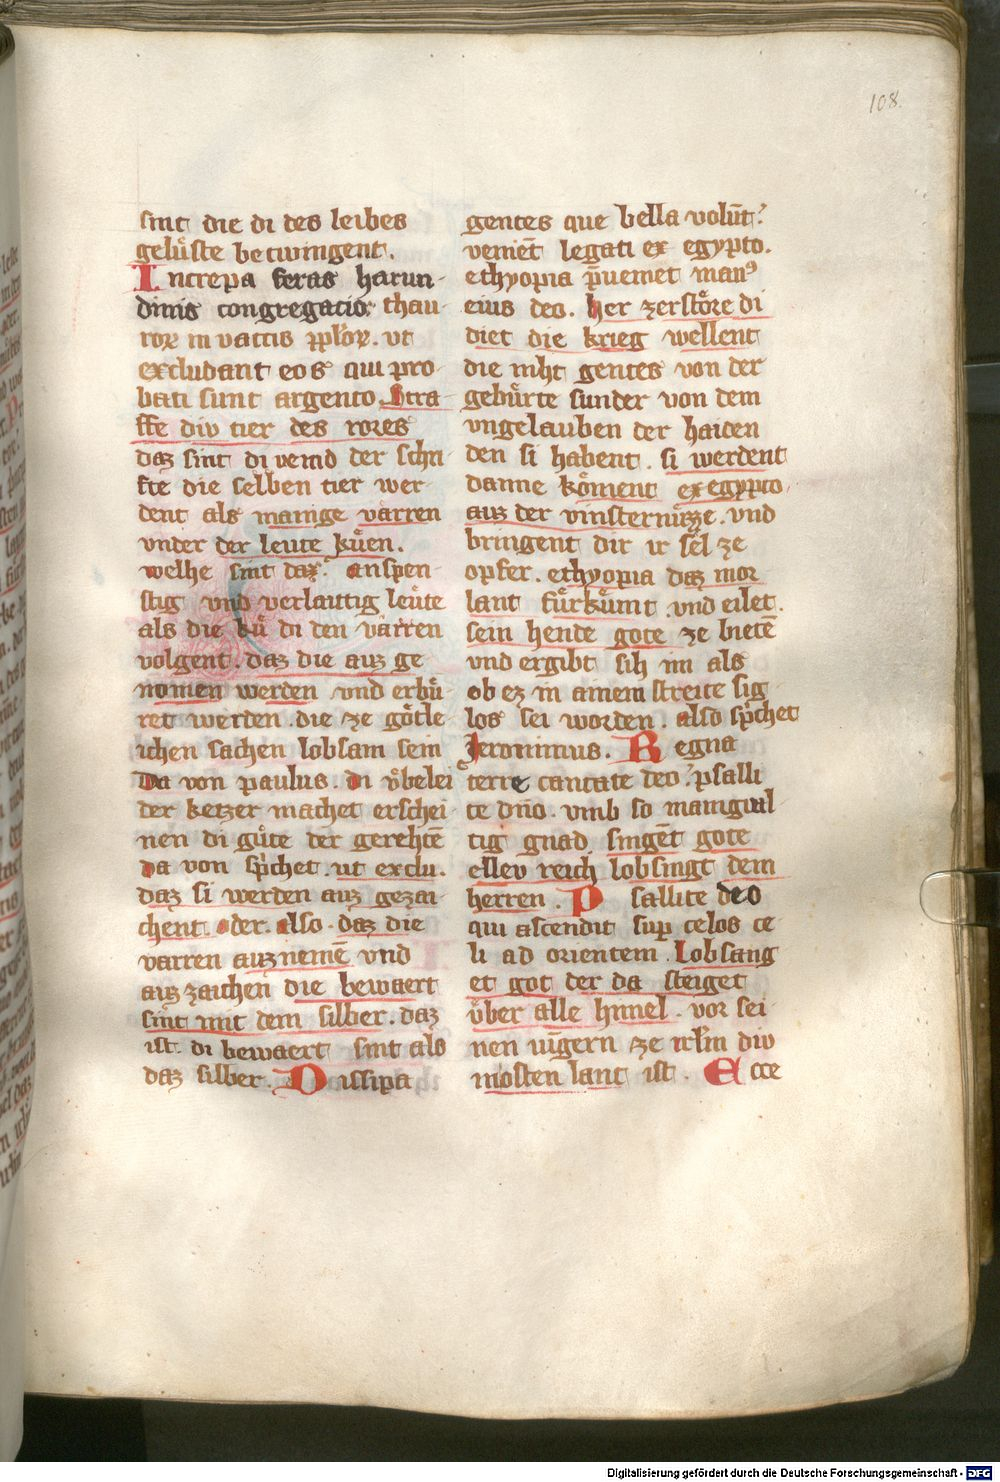 108.
sint die di des leibes
gelu̍ste betwingent.
Increpa feras harun-
dinis congregacio: thau-
roꝝ in vaccis ꝓploꝝ. vt
excludant eos qui pro-
bati sunt argento. Stra-
ffe div tier des rores
daz sint di veind der schri-
fte die selben tier wer-
dent als manige varren
vnder der leute kuͤen.
welhe sint daz? Anspen-
stig vnd verlautig leu̍te
als die kuͤ di den varren
volgent. daz die auz ge-
nomen werden vnd erhuͤ-
ret werden. die ze goͤtle-
ichen sachen lobsam sein
Da von paulus. di vͤbelei
der ketzer machet erschei-
nen di guͤte der gerehtē
Da von sp̄chet. ut exclu.
daz si werden auz gezai-
chent. oder. also. daz die
varren auznemē vnd
auz zaichen die bewaert
sint mit dem silber. daz
ist di bewaert sint als
daz silber. Dissipa
gentes que bella volūt.
venient legati ex egypto.
ethyopia p̄uemet manꝰ
eius deo. her zerstoͤre di
diet die krieg wellent
die niht gentes von der
gebuͤrte sunder von dem
vngelauben der haiden
den si habent. si werdent
danne koͤment ex egypto
auz der vinsternuͤzze. vnd
bringent dir ir sel ze
opfer. ethyopia daz mor-
lant fuͤrkuͤmt vnd eilet.
sein hende gote ze bietē
vnd ergibt sih im als
ob ez in ainem streite sig-
los sei worden. also sp̄chet
Jeronimus. Regna
terre cantate deo. psalli-
te dn̄o. vmb so manigual-
tig gnad singēt gote
ellev reich lobsingt dem
herren. Psallite deo
qui ascendit sup̄ celos ce-
li ad orientem. Lobsang
et got der da steiget
vͤber alle himel. vor sei-
nen iu̅gern ze irl̄m div
in osten lant ist. Ecce
Digitalisierung gefördert durch die Deutsche Forschungsgemeinschaft - DFG